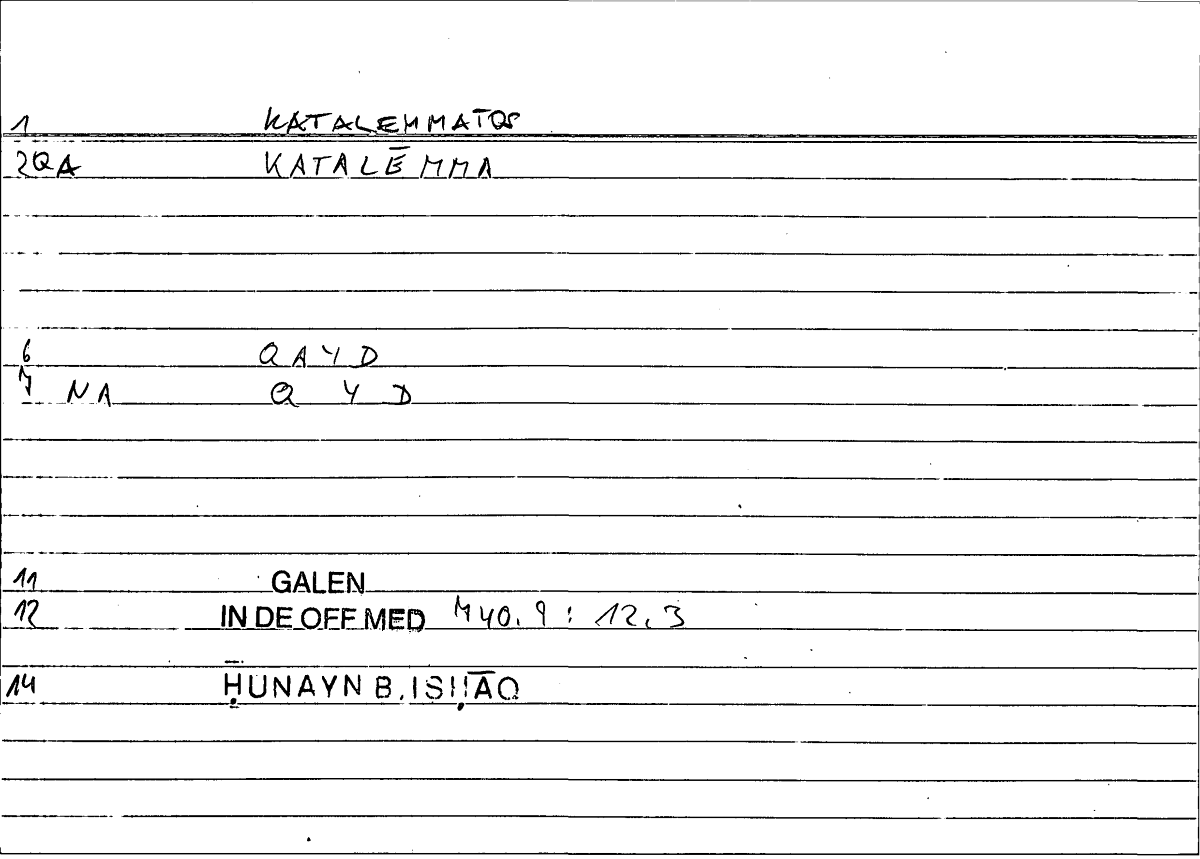 1 KATALEMMATOS
2QA KATALĒMMA
6 QAYD
7 NA Q Y D
11 GALEN
12 IN DE OFF MED 740.9 : 12.3
14 ḤUNAYN B. ISḤĀQ